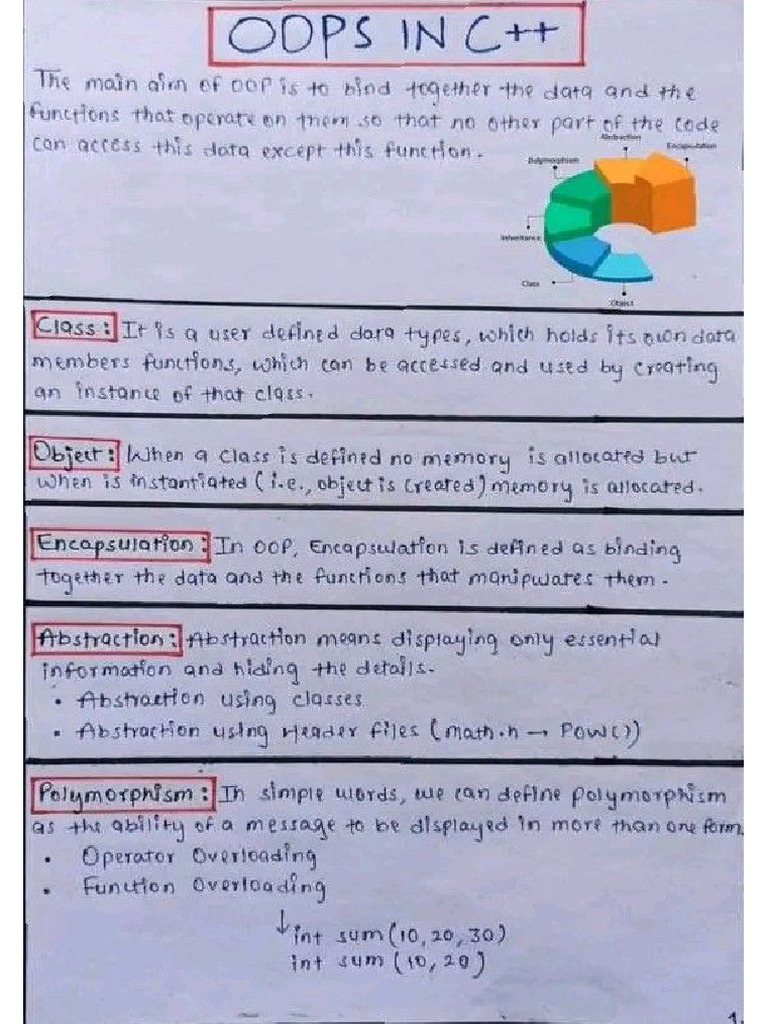 OOPS IN C++
The main aim of OOP is to bind together the data and the
functions that operate on them so that no other part of the code
can access this data except this function.
Abstraction
Encapsulation
Polymorphism
Inheritance
Class
Object
Class: It is a user defined data types, which holds its own data
members functions, which can be accessed and used by creating
an instance of that class.
Object: When a class is defined no memory is allocated but
when is instantiated (i.e., object is created) memory is allocated.
Encapsulation: In OOP, Encapsulation is defined as binding
together the data and the functions that manipulates them.
Abstraction: Abstraction means displaying only essential
information and hiding the details.
• Abstraction using classes
• Abstraction using Header files (math.h → Pow())
Polymorphism: In simple words, we can define polymorphism
as the ability of a message to be displayed in more than one form.
• Operator Overloading
• Function Overloading
↓ int sum(10,20,30)
int sum (10,20)
1.